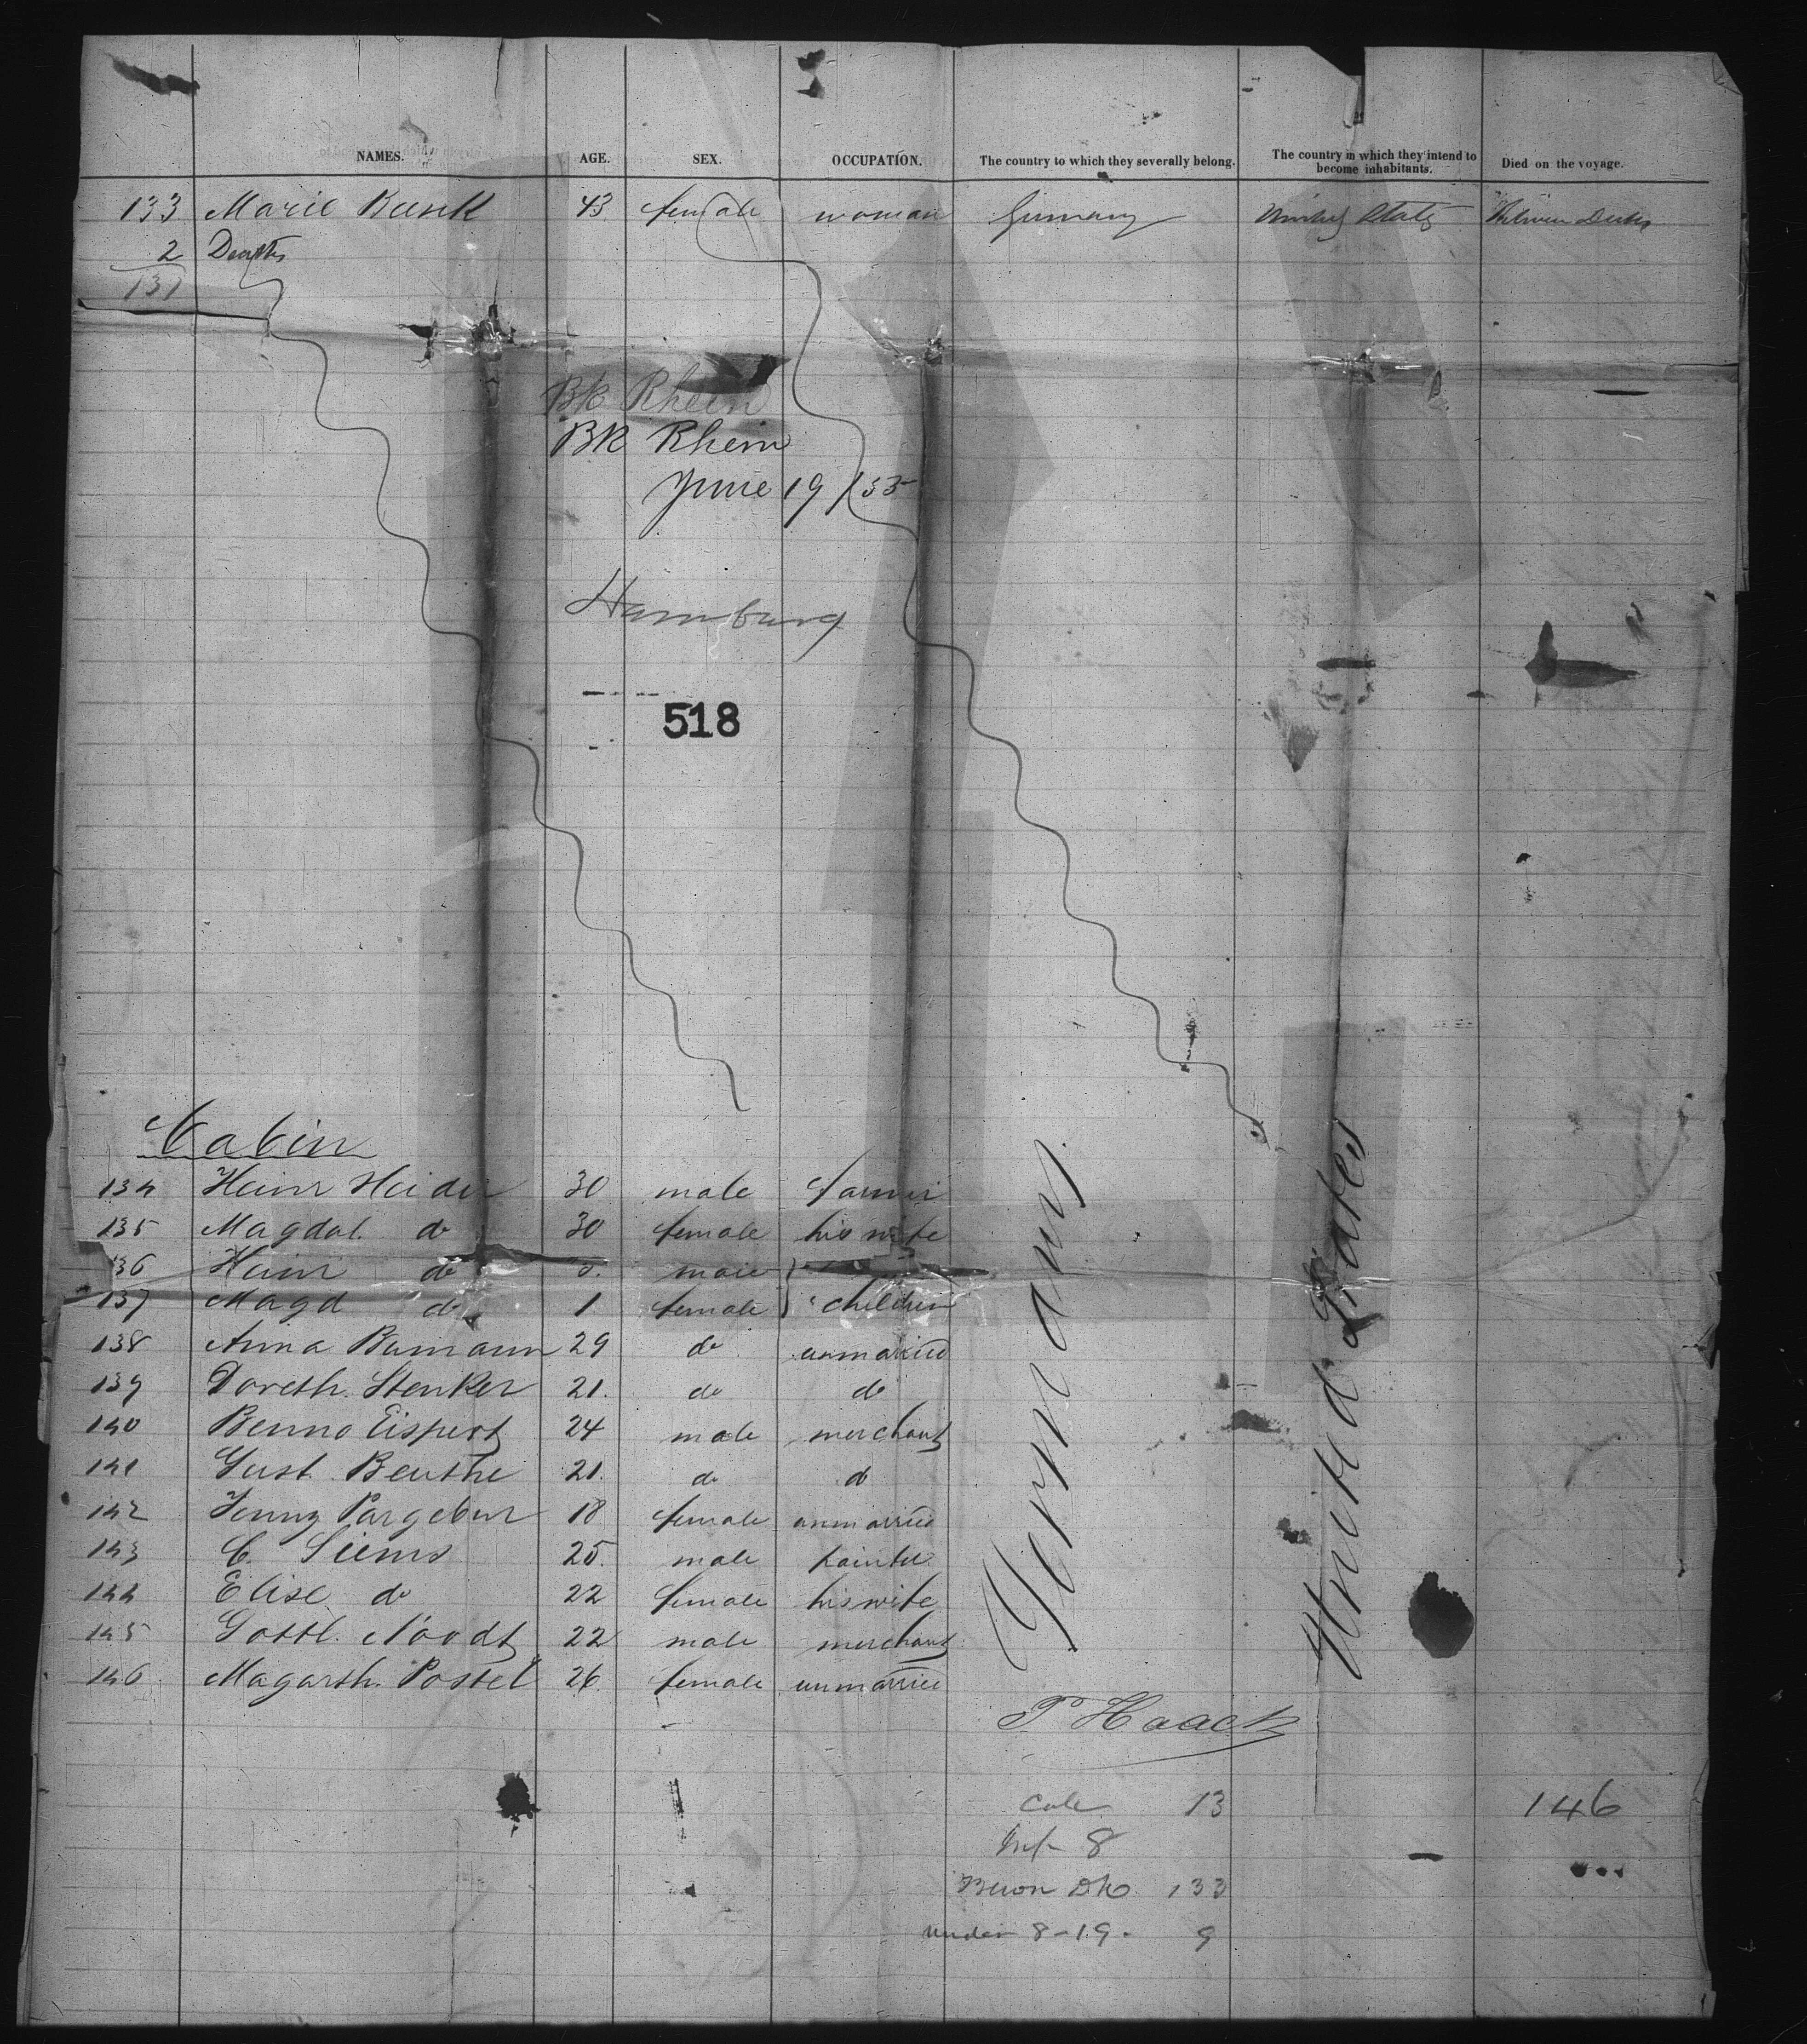 NAMES. AGE. SEX. OCCUPATION. The country to which they severally belong. The country in which they intend to become inhabitants. Died on the voyage.
133 Marie Bunk 43 female woman Germany United States Between Decks
2 Deaths
131
BK Rhein
BK Rhein
June 19 /55
Hamburg
518
Cabin
134 Heinr Heider 30 male farmer
135 Magdal. do 30 female his wife
136 Heinr do male
137 Magd do 1 female children
138 Anna Bumann 29 do unmarried
139 Doroth. Stenker 21. do do
140 Benno Eispert 24 male merchant
141 Gust. Beuthe 21. do do
142 Jenny Pargebur 18 female unmarried
143 C. Siems 25. male painter
144 Elise do 22 female his wife
145 Gottl. Noodt 22 male merchant
146 Magareth. Postel 26 female unmarried
Germany
United States
P Haack
Cab 13 146
Inf 8
Betwn Dk 133
under 8-19. 9